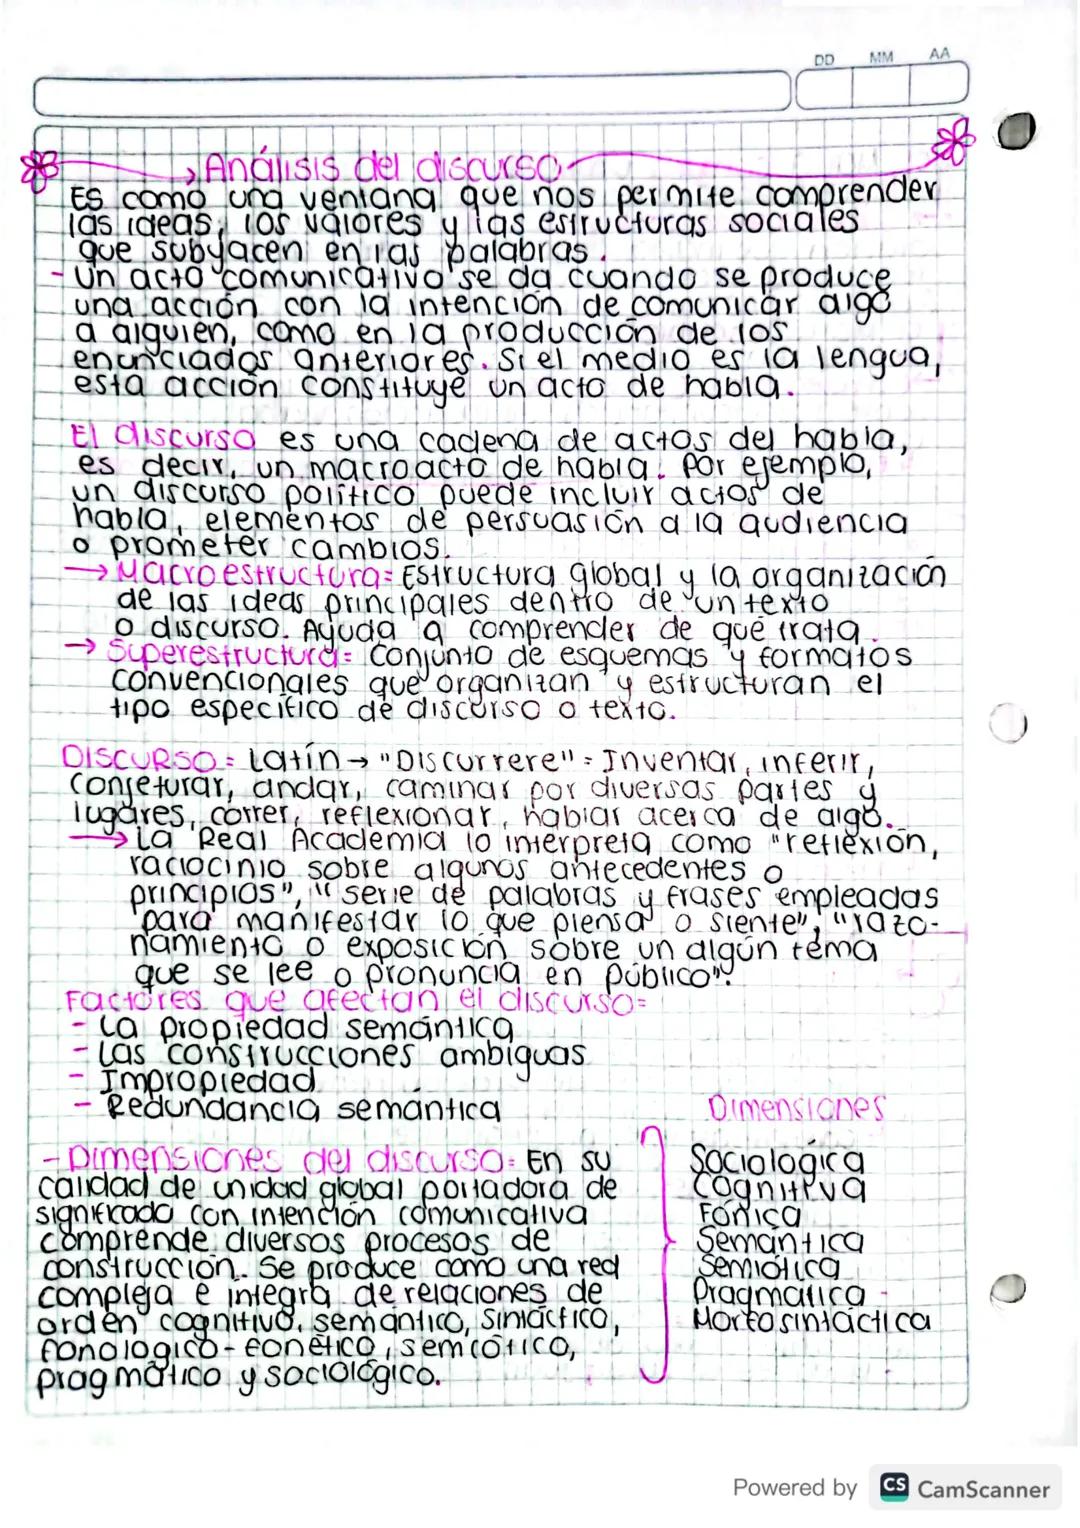 DD MM AA
Análisis del discurso
Es como una ventana que nos permite comprender
las ideas, los valores y las estructuras sociales
que subyacen en las palabras.
- Un acto comunicativo se da cuando se produce
una acción con la intención de comunicar algo
a alguien, como en la producción de los
enunciados anteriores. Si el medio es la lengua,
esta acción constituye un acto de habla.
El discurso es una cadena de actos del habla,
es decir, un macroacto de habla. Por ejemplo,
un discurso político puede incluir actos de
habla, elementos de persuasión a la audiencia
o prometer cambios.
→ Macroestructura= Estructura global y la organización
de las ideas principales dentro de un texto
o discurso. Ayuda a comprender de qué trata.
→ Superestructura= Conjunto de esquemas y formatos
convencionales que organizan y estructuran el
tipo específico de discurso o texto.
DISCURSO= Latín → "Discurrere" = Inventar, inferir,
conjeturar, andar, caminar por diversas partes y
lugares, correr, reflexionar, hablar acerca de algo.
→ La Real Academia lo interpreta como "reflexión,
raciocinio sobre algunos antecedentes o
principios", "serie de palabras y frases empleadas
para manifestar lo que piensa o siente", "razo-
namiento o exposición sobre un algún tema
que se lee o pronuncia en público".
Factores que afectan el discurso=
- La propiedad semántica
- Las construcciones ambiguas
- Impropiedad
- Redundancia semántica
- Dimensiones del discurso= En su
calidad de unidad global portadora de
significado con intención comunicativa
comprende diversos procesos de
construcción. Se produce como una red
compleja e integra de relaciones de
orden cognitivo, semántico, sintáctico,
fonologico-fonético, semiótico,
pragmático y sociológico.
Dimensiones
Sociológica
Cognitiva
Fónica
Semántica
Semiótica
Pragmática
Morfosintáctica
Powered by CS CamScanner